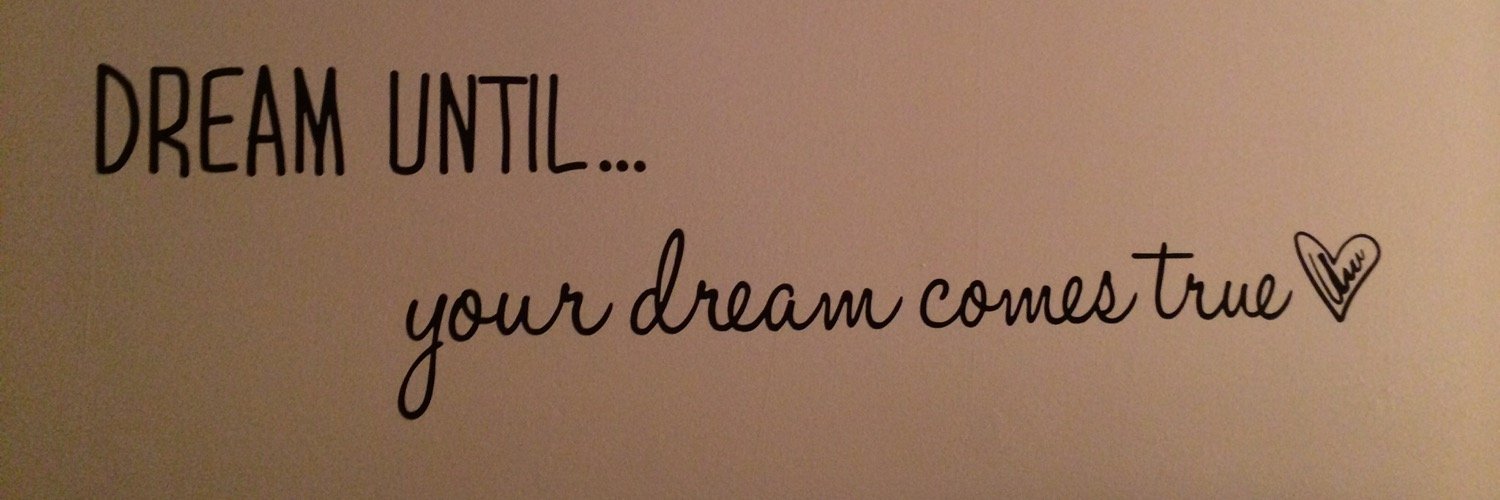 DREAM UNTIL...
your dream comes true